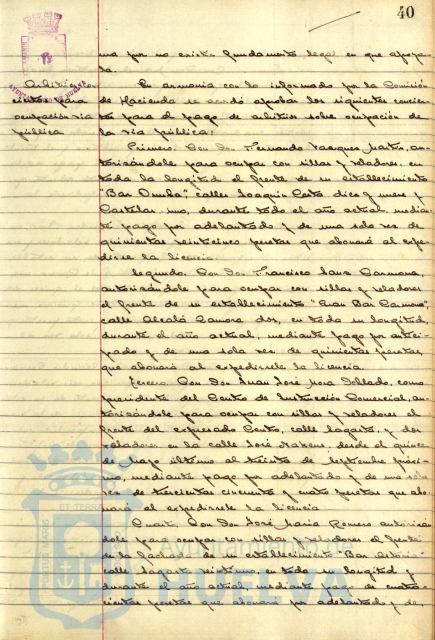 40
ma por no existir fundamento legal en que apoyar-
la.
Arbitrios con-
ciertos para
ocupación vía
pública
En armonía con lo informado por la Comisión
de Hacienda se acordó aprobar los siguientes concier-
tos para el pago de arbitrios sobre ocupación de
la vía pública:
Primero. Con Don Fernando Vazquez Martin, au-
torizándole para ocupar con sillas y veladores, en
toda la longitud el frente de su establecimiento
"Bar Onuba", calles Joaquin Costa diez y nueve y
Castelar uno, durante todo el año actual, median-
te pago por adelantado y de una sola vez de
quinientas veinticinco pesetas que abonará al expe-
dirse la licencia.
Segundo. Con Don Francisco Sanz Carmona,
autorizándole para ocupar con sillas y veladores
el frente de su establecimiento "Gran Bar Carmona",
calle Alcalá Zamora dos, en toda su longitud,
durante el año actual, mediante pago por antici-
pado y de una sola vez, de quinientas pesetas,
que abonará al expedirsele la licencia.
Tercero. Con Don Juan José Mora Doblado, como
presidente del Centro de Instrucción Comercial, au-
torizándole para ocupar con sillas y veladores el
frente del expresado Centro, calle Sagasta, y dos
veladores en la calle José Nakens, desde el quince
de mayo último al treinta de Septiembre próxi-
mo, mediante pago por adelantado y de una sola
vez de trescientas cincuenta y cuatro pesetas que abo-
nará al expedirsele la licencia.
Cuarto. Con Don José Maria Romero autorizán-
dole para ocupar con sillas y veladores el frente
de la fachada de su establecimiento "Bar
calle Sagasta en toda su longitud y
durante el año actual, mediante pago de cuatro-
cientas pesetas que abonará por adelantado y de,
PORTUS MARIS
ET TERRAE
HUELVA